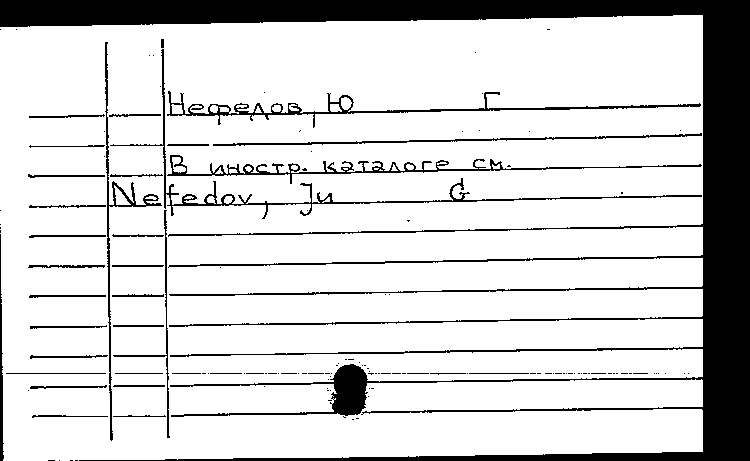 Нефедов, Ю Г
В иностр. каталоге см.
Nefedov, Ju G